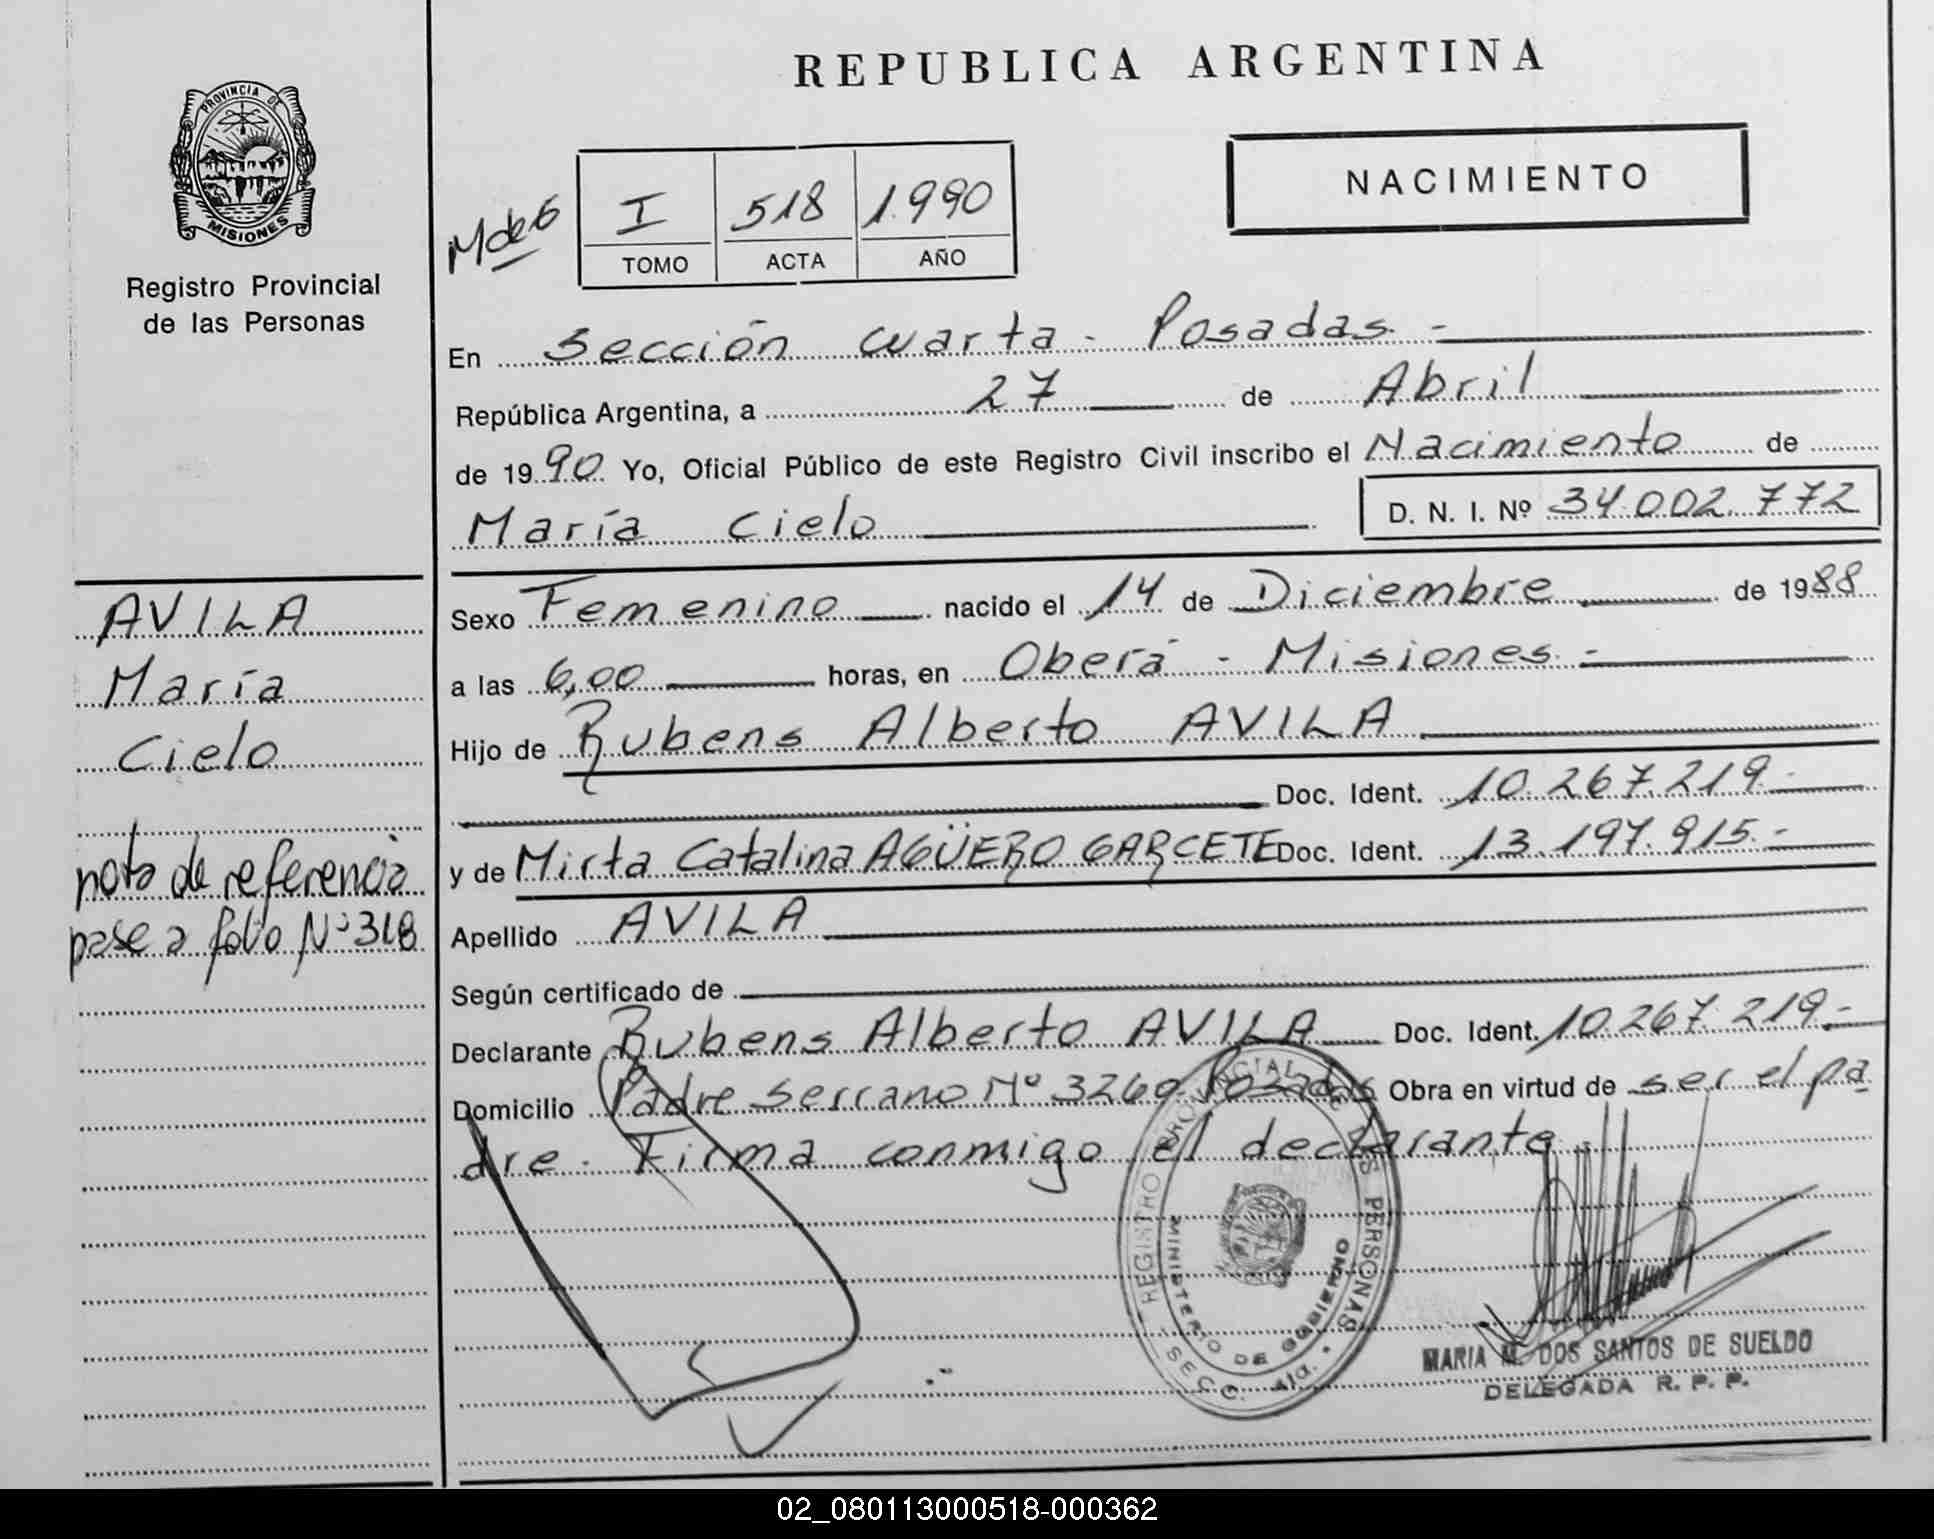 PROVINCIA DE
MISIONES
Registro Provincial
de las Personas
REPUBLICA ARGENTINA
NACIMIENTO
I 518 1.990
TOMO ACTA AÑO
En Sección cuarta - Posadas -
República Argentina, a 27 de Abril
de 1990 Yo, Oficial Público de este Registro Civil inscribo el Nacimiento de
María Cielo D. N. I. Nº 34.002.772
Sexo Femenino nacido el 14 de Diciembre de 1988
a las 6,00 horas, en Oberá - Misiones -
Hijo de Rubens Alberto AVILA
Doc. Ident. 10.267.219.-
y de Mirta Catalina AGÜERO GARCETE Doc. Ident. 13.197.915.-
Apellido AVILA
Según certificado de
Declarante Rubens Alberto AVILA Doc. Ident. 10.267.219.-
Domicilio Padre Serrano Nº 3260 Posadas Obra en virtud de ser el pa
dre. Firma conmigo el declarante.
AVILA
María
Cielo
nota de referencia
pase a folio Nº 318
REGISTRO PROVINCIAL DE LAS PERSONAS
MINISTERIO DE GOBIERNO
SECC. 4ta.
MARIA M. DOS SANTOS DE SUELDO
DELEGADA R. P. P.
02_080113000518-000362